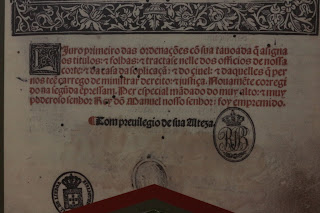 Liuro primeiro das ordenações cõ sua tauoada q̃ asigna
os titulos: ⁊ folhas: ⁊ tractase nelle dos officios de nossa
corte: ⁊ da casa da soplicaçã: ⁊ do ciuel: ⁊ daquelles q̃ per
nos tẽ carrego de ministrar dereito: ⁊ justiça. Nouamẽte corregido
na segũda ẽpressam. Per especial mãdado do muy alto: ⁊ muy
poderoso senhor Rey dõ Manuel nosso senhor: foy empremido.
Com preuilegio de sua Alteza